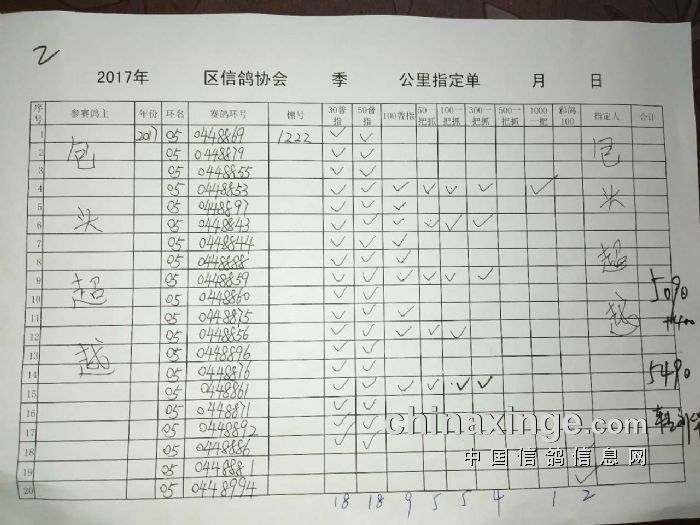 2
2017年 区信鸽协会 季 公里指定单 月 日
序号 参赛鸽主 年份 环名 赛鸽环号 棚号 30普指 50普指 100普指 50一把抓 100一把抓 300一把抓 500一把抓 1000一把 彩鸽100 指定人 合计
1 包 2017 05 0448869 1222 ✓ ✓ 包
2 05 0448879 ✓ ✓
3 05 0448855 ✓ ✓
4 05 0448853 ✓ ✓ ✓ ✓ ✓ ✓ ✓
5 头 05 0448897 ✓ ✓ ✓ 头
6 05 0448843 ✓ ✓ ✓ ✓ ✓ ✓
7 05 0448844 ✓ ✓ ✓
8 05 0448888 ✓ ✓ ✓ 超
9 超 05 0448859 ✓ ✓ ✓ ✓ ✓ ✓ 5090
10 05 0448860 ✓ ✓
11 05 0448875 ✓ ✓ ✓ 越 +400
12 越 05 0448856 ✓ ✓ ✓ ✓ ✓
13 05 0448896 ✓ ✓
14 05 0448876 ✓ ✓ 5490
15 05 0448861 ✓ ✓ ✓ ✓ ✓ ✓
16 05 0448871 ✓ ✓
17 05 0448892 ✓ ✓
18 05 0448886 ✓ ✓
19 05 0448881 ✓
20 05 0448994 ✓
18 18 9 5 5 4 1 2
chinaxinge.com
中国信鸽信息网